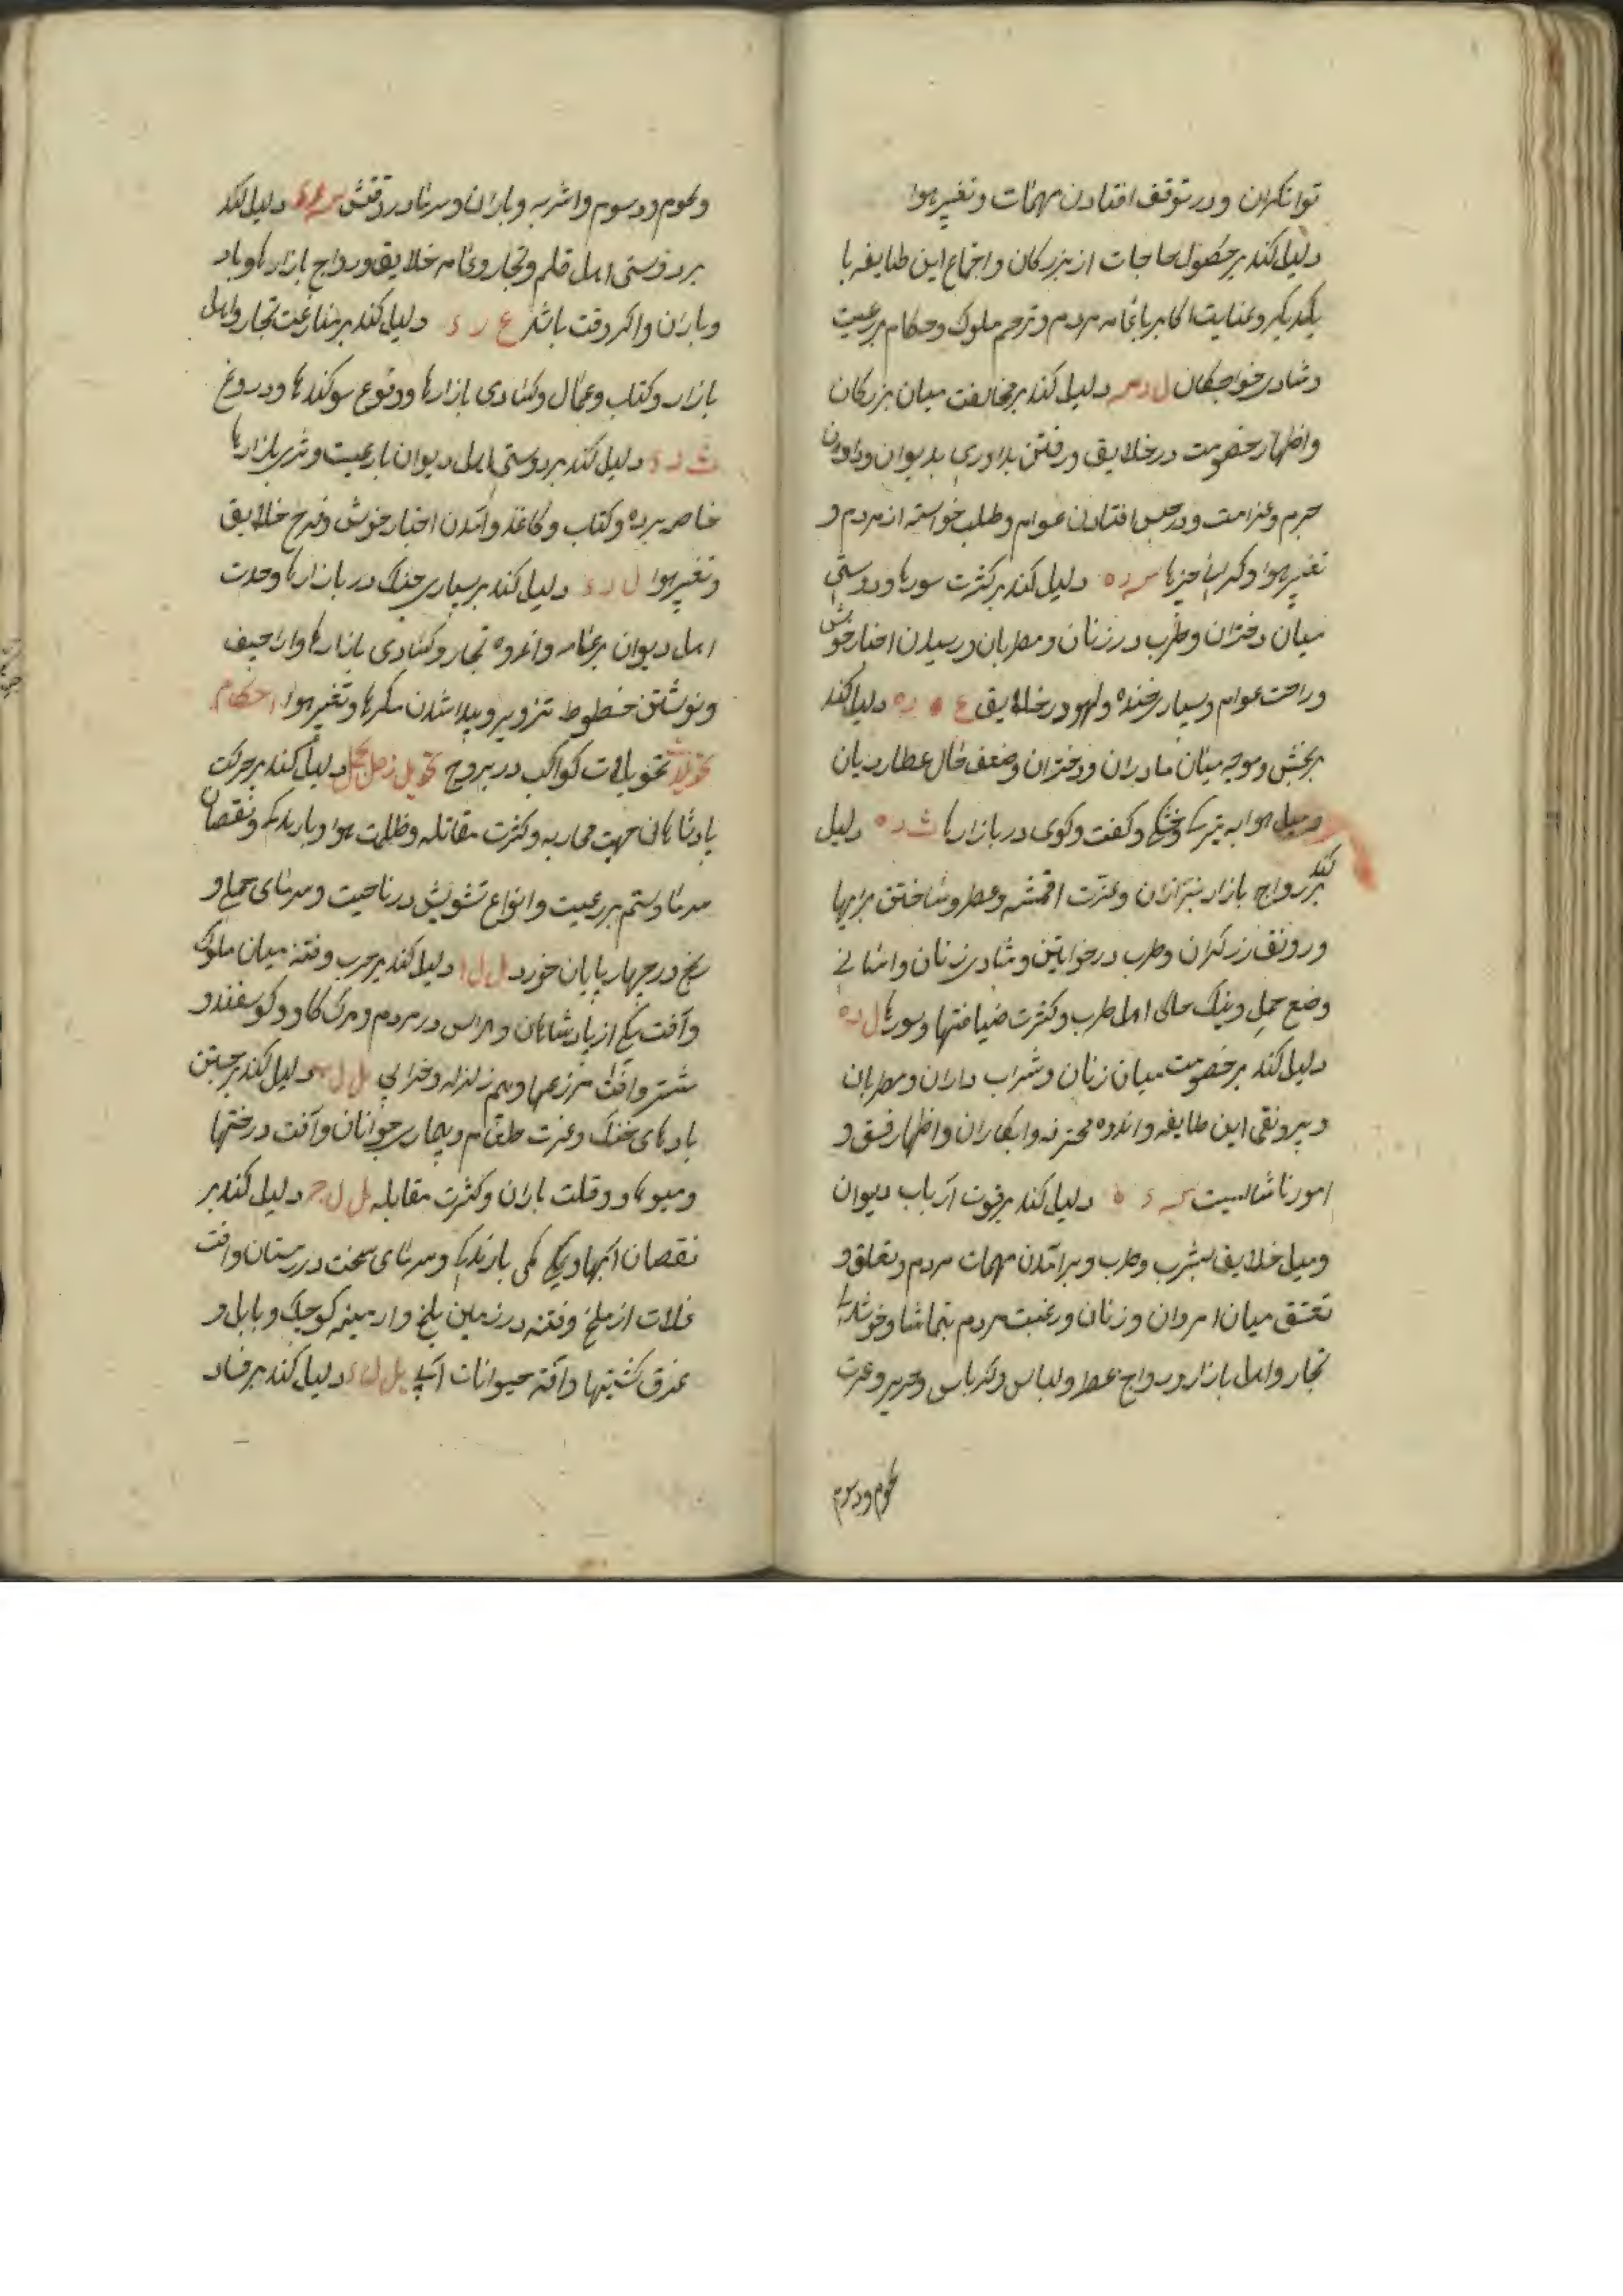 توانکران ودر توقف افتادن مهمات وتغیر هوا
دلیل کند بر حصول حاجات از بزرکان واجتماع این طایفه با
یکدیکر وعنایت اکابر با عامه مردم وترحم ملوک وحکام بر رعیت
وشادی خواجکان دلیل کند بر مخالفت میان بزرکان
واظهار خصومت در خلایق ورفتن بداوری بدیوان ودادن
جرم وغرامت ودر حبس افتادن عوام وطلب خواسته از مردم و
تغیر هوا وکرانی چیزها دلیل کند بر کثرت سورها ودوستی
میان دختران وطرب در زنان ومطربان ورسیدن اخبار خوش
وراحت عوام وبسیاری خنده ولهو در خلایق دلیل کند
بر بخش میان مادران ودختران وضعف حال عطاردیان
ومیل هوا به تیرکی وخشکی وکفت وکوی در بازارها دلیل
کند بر رواج بازار بزازان وعزت اقمشه وعطر وساختن
ورونق زرکران وطرب در خواتین وشادی زنان واسانی
وضع حمل ونیک حالی اهل طرب وکثرت ضیافتها وسورها
دلیل کند بر خصومت میان زنان وشراب داران ومطربان
وبیرونقی این طایفه واندوه محترفه وابکاران واظهار فسق و
امور ناشایست دلیل کند بر قوت ارباب دیوان
ومیل خلایق بشرب وطرب وبرآمدن مهمات مردم وتعلق و
تعشق میان امردان وزنان ورغبت مردم بتماشا وخوشدلی
تجار واهل بازار ورواج عطر ولباس وکرباس وحریر وعزت
لحوم ودسوم
ولحوم ودسوم واشربه وباران وسرما در وقتش دلیل کند
بر دوستی اهل قلم وتجار وعامه خلایق ورواج بازارها وباد
وباران واکر وقت باشد ع ر د دلیل کند بر منازعت تجار واهل
بازار وکتاب وعمال وکسادی بازارها ووقوع سوکندها ودروغ
دلیل کند بر دوستی اهل دیوان با رعیت وتیزی بازارها
خاصه برده وکتاب وکاغذ وآمدن اخبار خوش وفرح خلایق
وتغیر هوا دلیل کند بر بسیاری جنک در بازارها وحدت
اهل دیوان بر عامه واندوه تجار وکسادی بازارها واراجیف
ونوشتن خطوط تزویر وپیدا شدن مکرها وتغیر هوا احکام
تحویلات تحویلات کواکب در بروج تحویل زحل بحمل دلیل کند بر حرکت
پادشاهان جهت محاربه وکثرت مقاتله وظلمت هوا وبارندکی ونقصان
سرما وستم بر رعیت وانواع تشویش در ناحیت وسرمای و
رنج در چهارپایان خورد دلیل کند بر حرب وفتنه میان ملوک
وآفت یکی از پادشاهان وهراس در مردم ومرک کاو وکوسفند و
شتر وآفت مزرعها وبیم زلزله وخرابی دلیل کند بر جستن
بادهای خنک وعزت طعام وبیماری جوانان وآفت درختها
ومیوها وقلت باران وکثرت مقابله دلیل کند بر
نقصان آبها بارندکی وسرمای سخت در زمستان وآفت
غلات از ملخ وفتنه در زمین بلخ وارمینه کوچک وبابل و
غرق کشتیها وآفت حیوانات آبی دلیل کند بر فساد